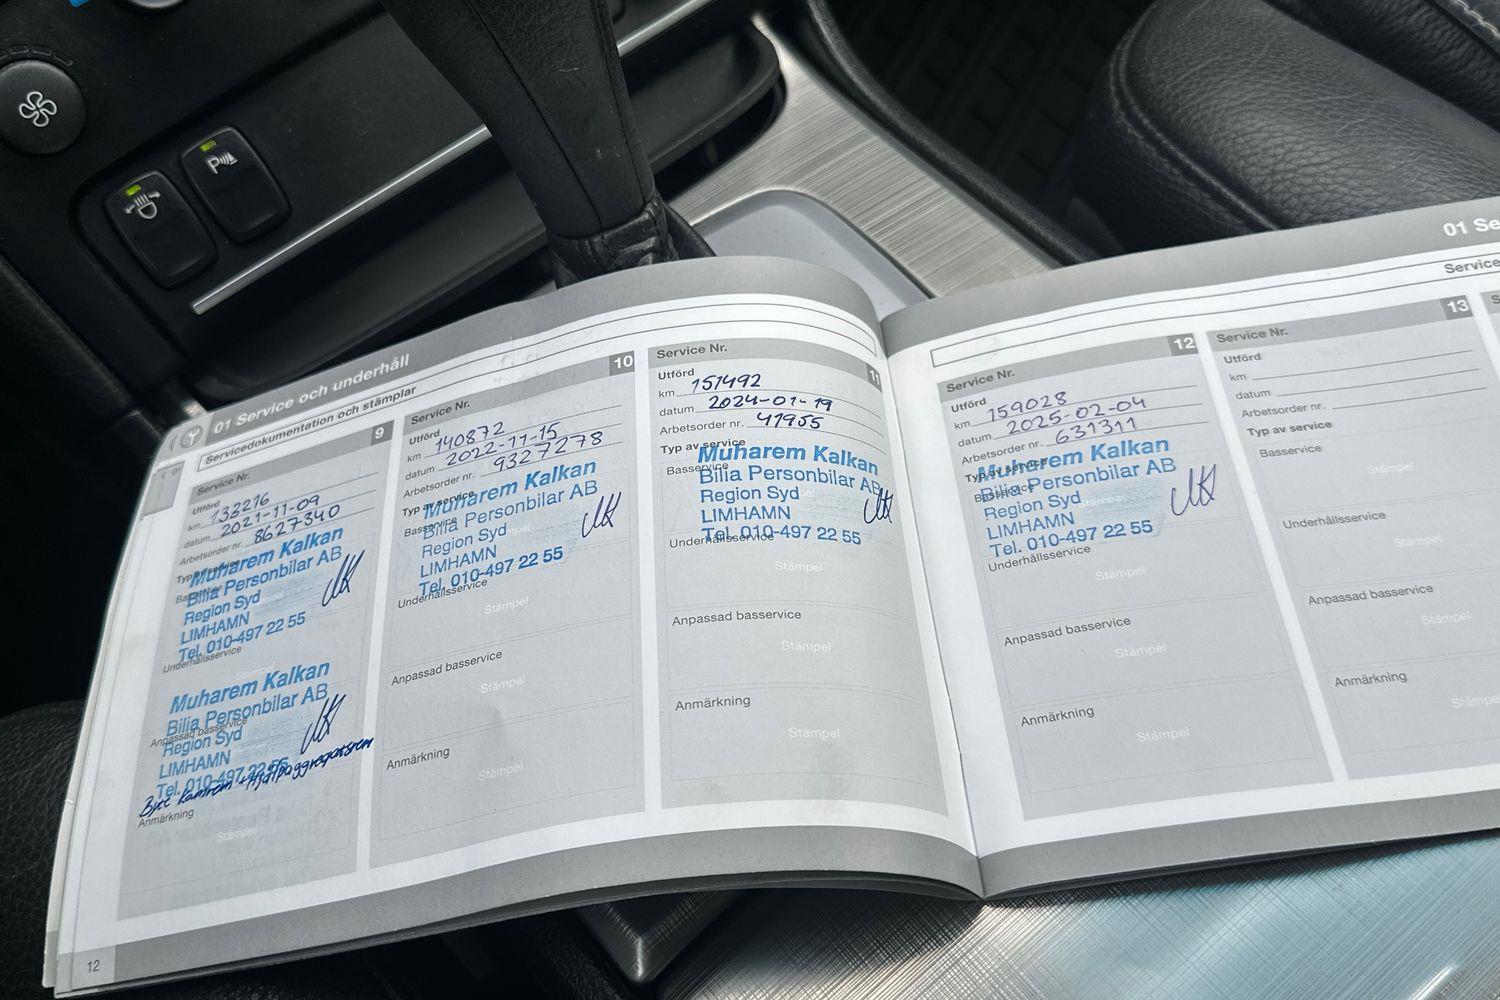 P
01 Service och underhåll
Servicedokumentation och stämplar
Service Nr. 9
Utförd
km 133216
datum 2021-11-09
Arbetsorder nr. 8627340
Typ av service
Basservice
Muharem Kalkan
Bilia Personbilar AB
Region Syd
LIMHAMN
Tel. 010-497 22 55
Underhållsservice
Stämpel
Muharem Kalkan
Bilia Personbilar AB
Anpassad basservice
Region Syd
LIMHAMN
Tel. 010-497 22 55
Byte kamrem + Hjälpaggregatsrem
Anmärkning
Stämpel
12
Service Nr. 10
Utförd
km 140872
datum 2022-11-15
Arbetsorder nr. 9327278
Typ av service
Basservice
Muharem Kalkan
Bilia Personbilar AB
Region Syd
LIMHAMN
Tel. 010-497 22 55
Underhållsservice
Stämpel
Anpassad basservice
Stämpel
Anmärkning
Stämpel
Service Nr. 11
Utförd
km 151492
datum 2024-01-19
Arbetsorder nr. 41955
Typ av service
Basservice
Muharem Kalkan
Bilia Personbilar AB
Region Syd
LIMHAMN
Tel. 010-497 22 55
Underhållsservice
Stämpel
Anpassad basservice
Stämpel
Anmärkning
Stämpel
01 Se
Service
Service Nr. 12
Utförd
km 159028
datum 2025-02-04
Arbetsorder nr. 631311
Typ av service
Basservice
Muharem Kalkan
Bilia Personbilar AB
Region Syd
LIMHAMN
Tel. 010-497 22 55
Stämpel
Underhållsservice
Stämpel
Anpassad basservice
Stämpel
Anmärkning
Stämpel
Service Nr. 13
Utförd
km
datum
Arbetsorder nr.
Typ av service
Basservice
Stämpel
Underhållsservice
Stämpel
Anpassad basservice
Stämpel
Anmärkning
Stämpe